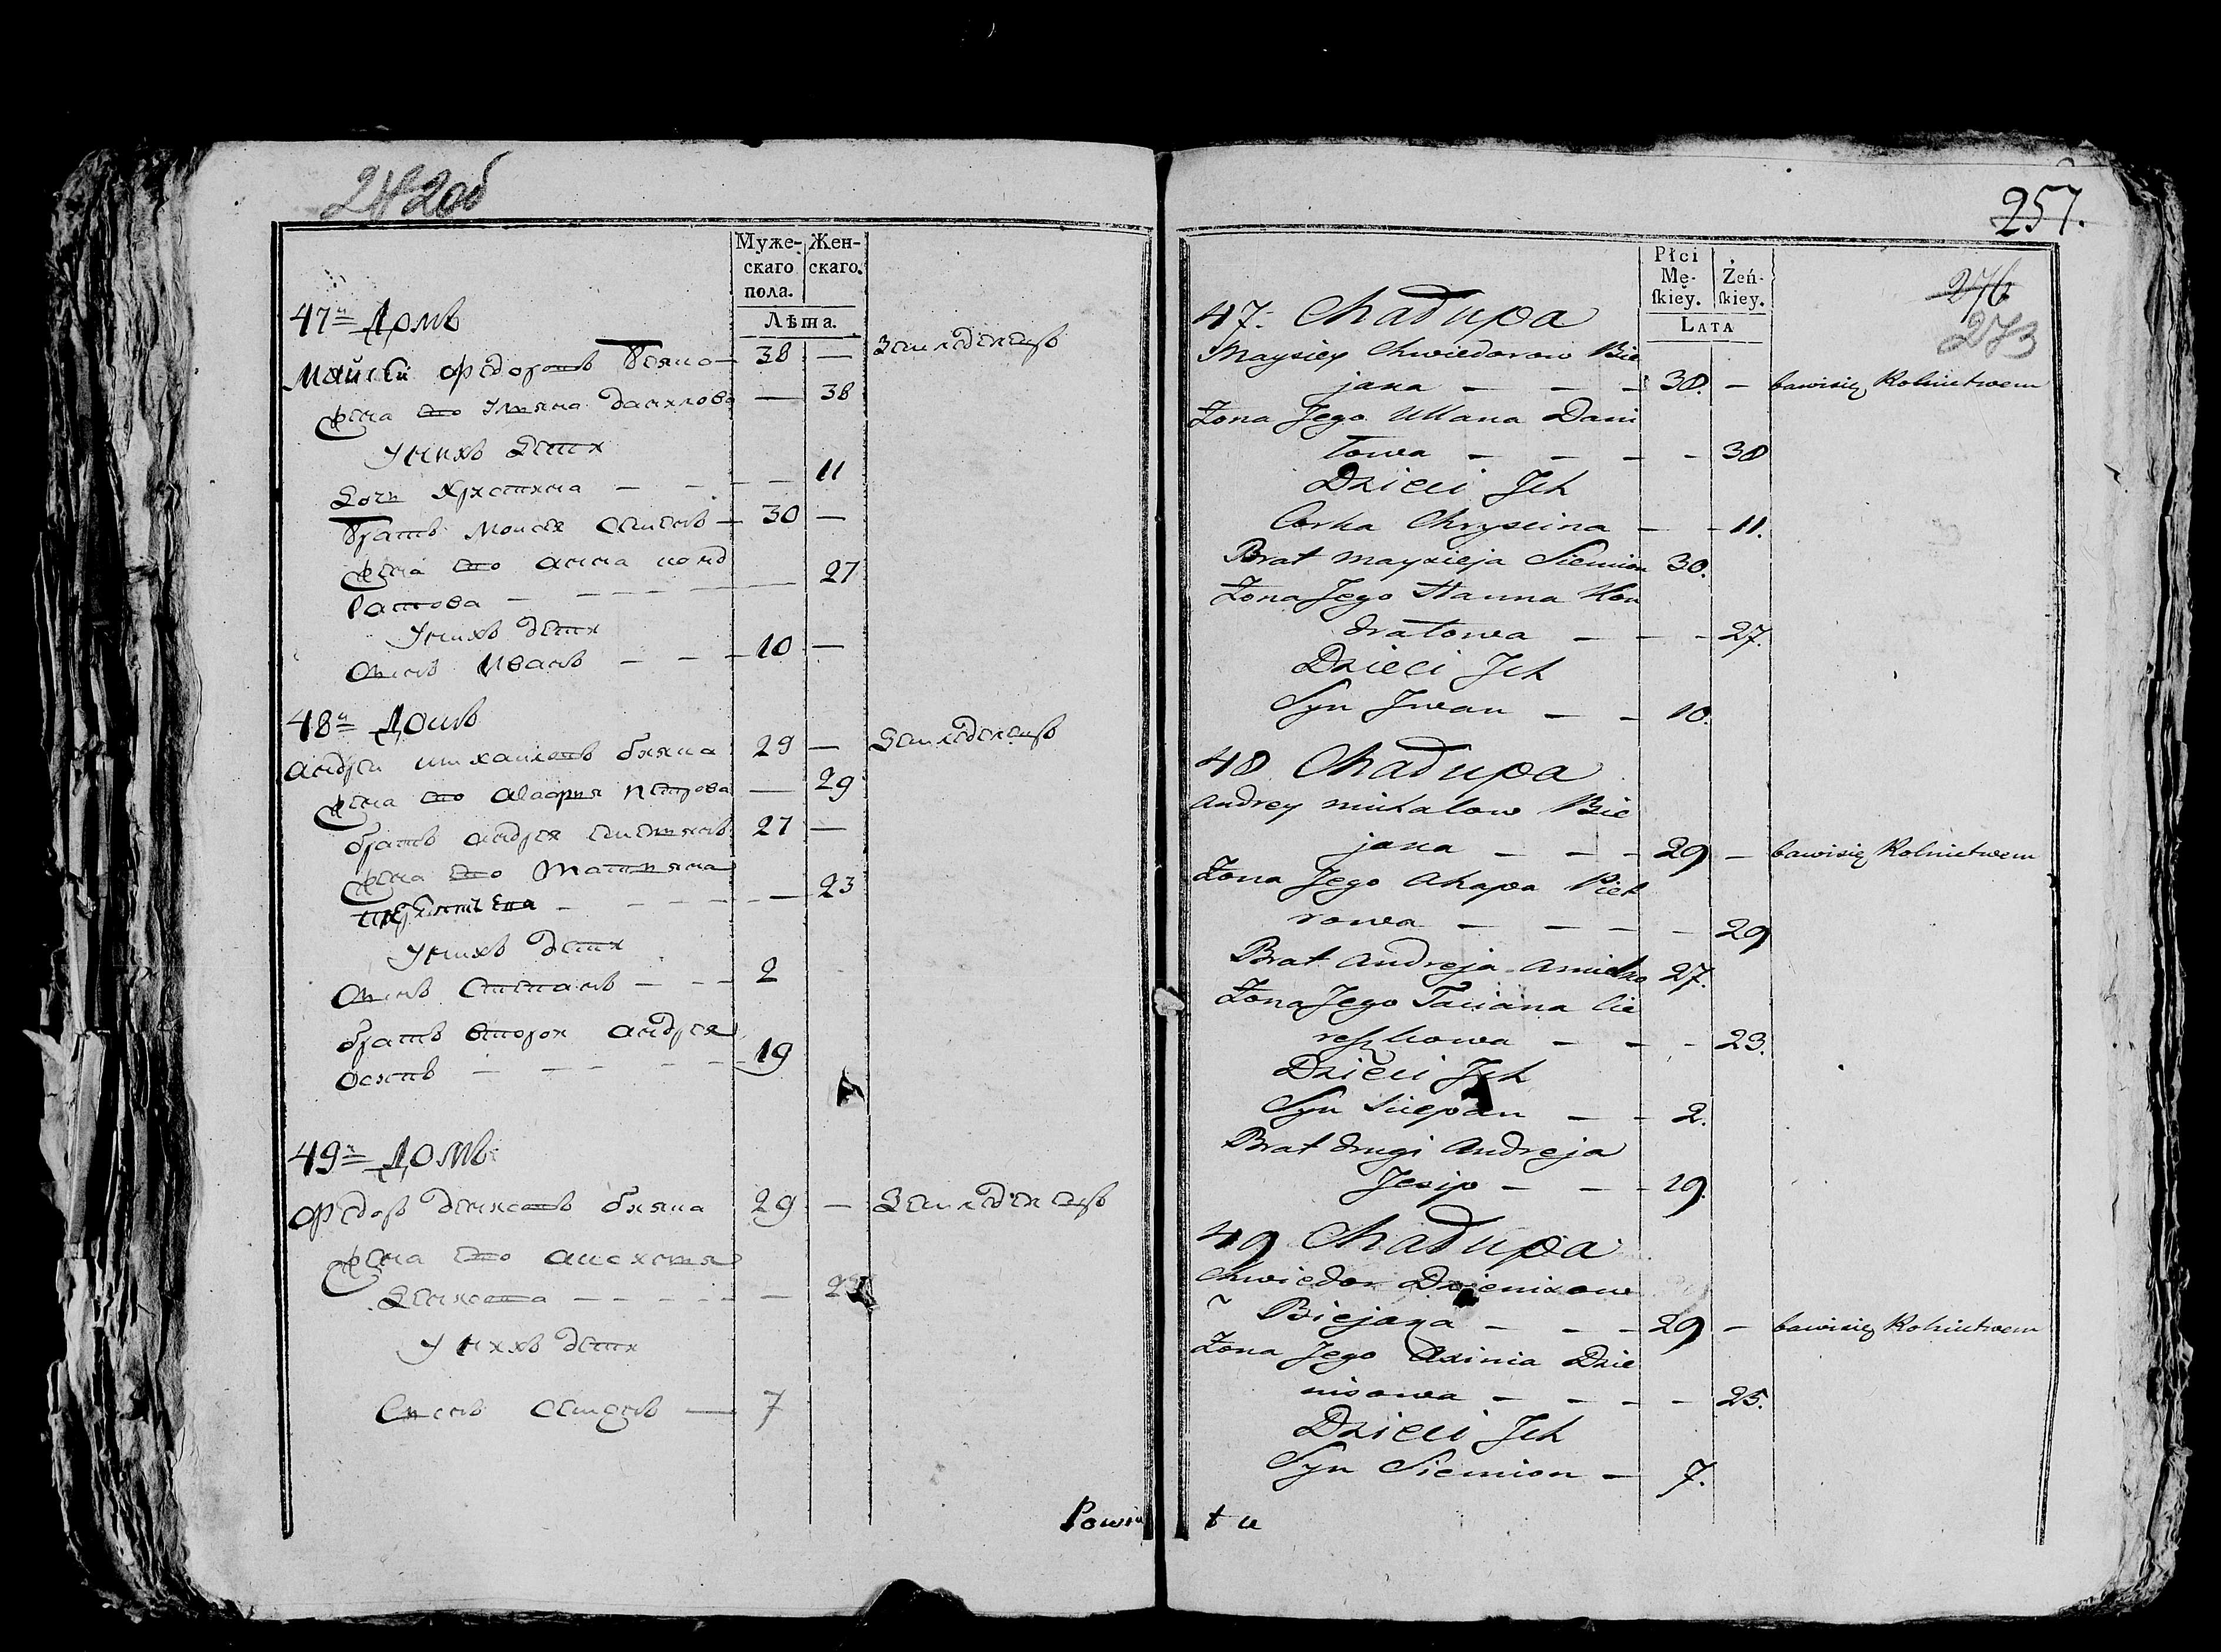 242об
Муже- Жен-
скаго скаго.
пола.
Лѣта.
47й Домъ
Майсѣй Федоровъ Беяна — 38 — Земледелецъ
Жена его Ульяна Данилова — 38
У нихъ дети
Дочь Христина — — — — 11
Братъ Моисея Семенъ — 30 —
Жена его Анна Конд
ратова — — — — — 27
У нихъ дети
Сынъ Иванъ — — — 10 —
48й Домъ
Андрей Михайловъ Беяна 29 — Земледелецъ
Жена его Агафия Петрова — 29
братъ Андрея 27 —
Жена его Татьяна
— — — — — — 23
У нихъ дети
Сынъ Степанъ — — — 2
братъ второй Андрея
Осипъ — — — — — 19
49й Домъ
Федоръ Денисовъ беяна 29 — Земледелецъ
Жена его Аксинья
Денисова — — — — — —
У нихъ дети
Сынъ Семенъ — 7
Powia
257.
276
273
Płci
Mę- Żeń-
skiey. skiey.
LATA
47. Chałupa
Maysiey Chwiedorow Bie
jana — — — 38. — bawi się Rolnictwem
Żona Jego Ullana Dani
łowa — — — — 38
Dzieci Ich
Corka Chrystina — — 11.
Brat Maysieja Siemion 30.
Żona Jego Hanna Kon
dratowa — — — 27.
Dzieci Ich
Syn Jwan — — 10.
48 Chałupa
Andrey Michałow Bie
jana — — — 29 — bawi się Rolnictwem
Żona Jego Ahapa Piet
rowa — — — — 29
Brat Andreja 27.
Żona Jego Taciana Cie
reszkowa — — — 23.
Dzieci Ich
Syn Sciepan — — 2.
Brat drugi Andreja
Jesip — — — 19.
49 Chałupa
Chwiedor Dzienisow
Biejana — — — 29 — bawi się Rolnictwem
Żona Jego Axinia Dzie
nisowa — — — — 25.
Dzieci Ich
Syn Siemion — 7.
t u